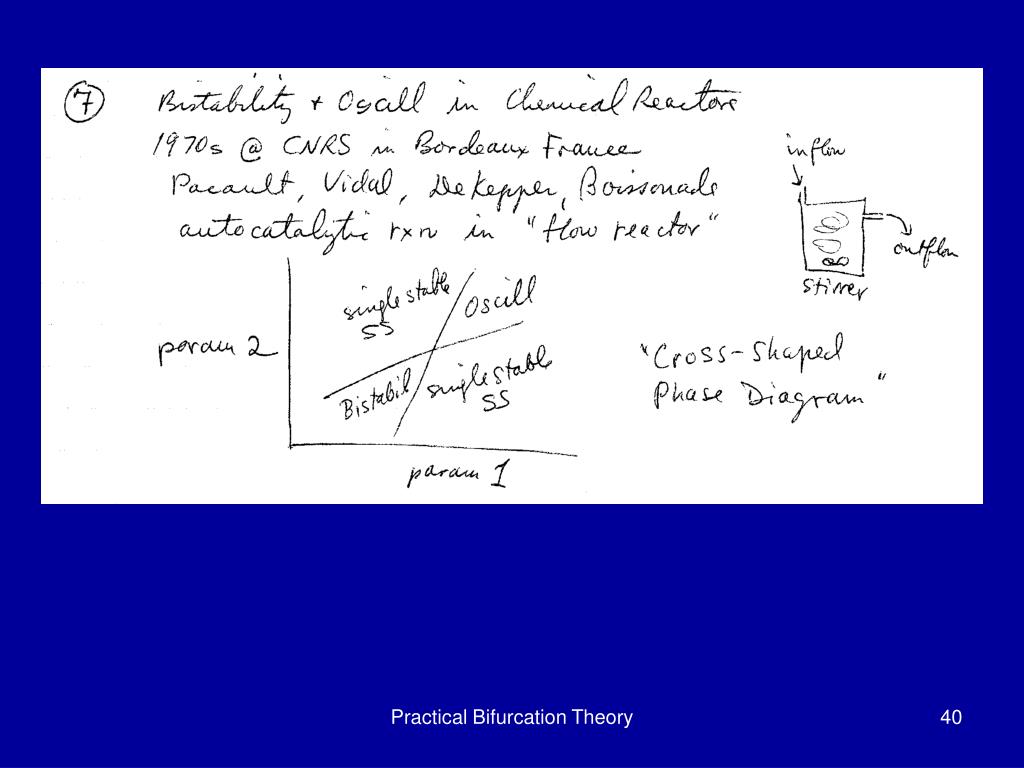 7 Bistability + Oscill in Chemical Reactors
1970s @ CNRS in Bordeaux France
Pacault, Vidal, DeKepper, Boissonade
autocatalytic rxn in "flow reactor"
inflow
outflow
stirrer
single stable
SS
Oscill
param 2
Bistabil
single stable
SS
"Cross-Shaped
Phase Diagram"
param 1
Practical Bifurcation Theory
40